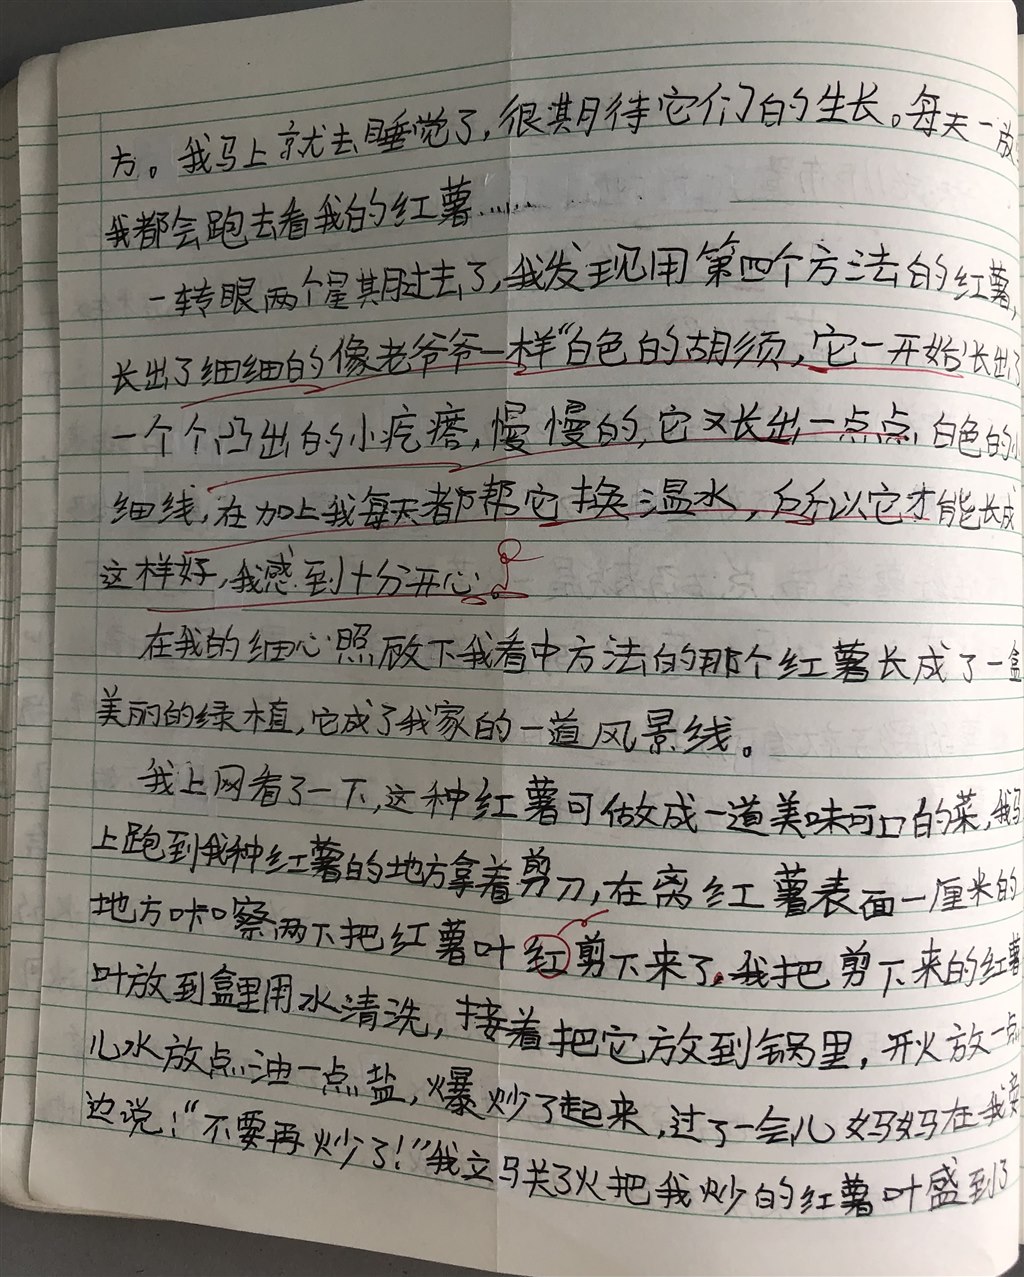 方。我马上就去睡觉了，很期待它们的生长。每天一放
我都会跑去看我的红薯……
一转眼两个星期过去了，我发现用第四个方法的红薯，
长出了细细的像老爷爷一样“白色的胡须，它一开始长出了
一个个凸出的小疙瘩，慢慢的，它又长出一点点，白色的小
细线，在加上我每天都帮它换温水，所以它才能长成
这样好，我感到十分开心。
在我的细心照顾下我看中方法的那个红薯长成了一盆
美丽的绿植，它成了我家的一道风景线。
我上网看了一下，这种红薯可做成一道美味可口的菜，我马
上跑到我种红薯的地方拿着剪刀，在离红薯表面一厘米的
地方咔嚓两下把红薯叶红剪下来了。我把剪下来的红薯
叶放到盒里用水清洗，接着把它放到锅里，开火放一点
儿水放点油一点盐，爆炒了起来，过了一会儿妈妈在我旁
边说：“不要再炒了！”我立马关了火把我炒的红薯叶盛到了